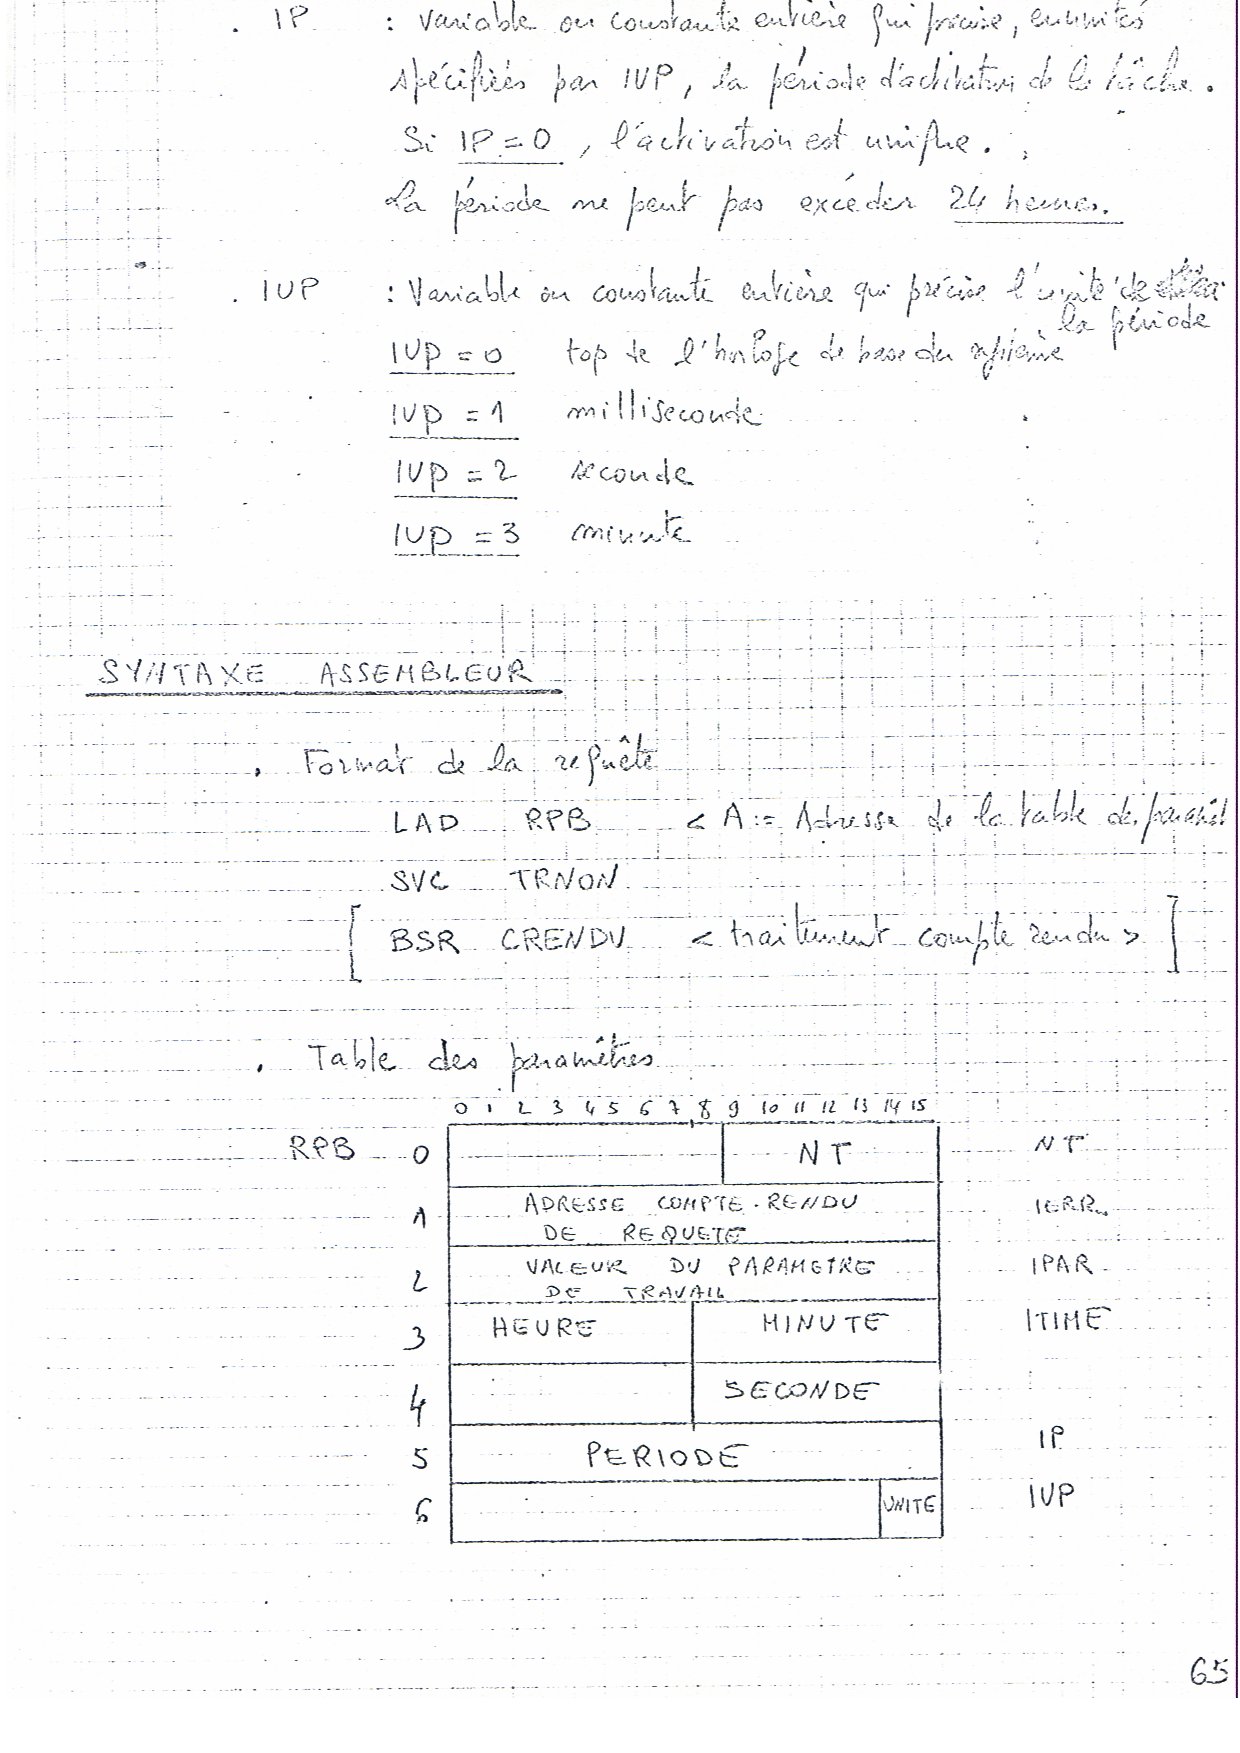 . IP : Variable ou constante entière qui précise, en unités
spécifiées par IUP, la période d'activation de la tâche.
Si IP = 0, l'activation est unique.
La période ne peut pas excéder 24 heures.
. IUP : Variable ou constante entière qui précise l'unité de
la période
IUP = 0 top de l'horloge de base du système
IUP = 1 milliseconde
IUP = 2 seconde
IUP = 3 minute
SYNTAXE ASSEMBLEUR
. Format de la requête
LAD RPB < A := Adresse de la table des paramèt
SVC TRNON
[ BSR CRENDU < traitement compte rendu > ]
. Table des paramètres
0 1 2 3 4 5 6 7 8 9 10 11 12 13 14 15
RPB 0 NT NT
1 ADRESSE COMPTE-RENDU IERR
DE REQUETE
2 VALEUR DU PARAMETRE IPAR
DE TRAVAIL
3 HEURE MINUTE ITIME
4 SECONDE
5 PERIODE IP
6 UNITE IUP
65